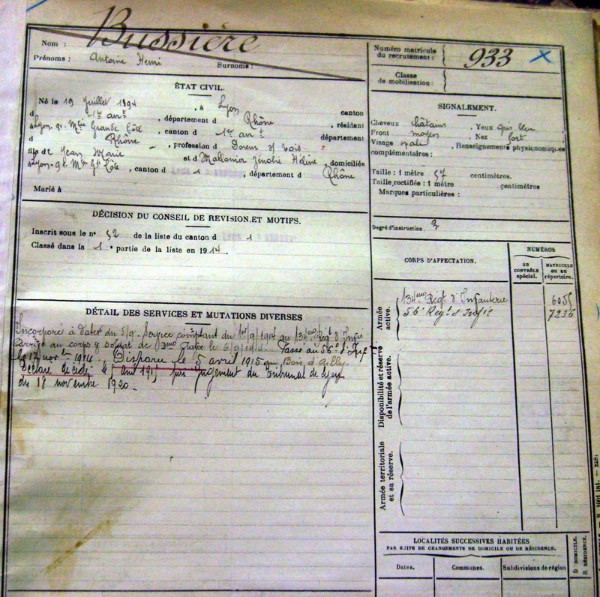 Nom : Bussière
Prénoms : Antoine Henri Surnoms :
Numéro matricule du recrutement : 933
Classe de mobilisation :
ÉTAT CIVIL.
Né le 19 juillet 1894, à Lyon canton
d 1er arrt, département d Rhône, résidant
à Lyon Grande Côte, canton d 1er arrt département
d Rhône, profession d Doreur s/ bois
fils de Jean Marie et d domiciliés
à Lyon Gde Côte, canton d 1 département d Rhône
Marié à
SIGNALEMENT.
Cheveux châtains, Yeux
Front moyen Nez fort
Visage ovale Renseignements physionomiques
complémentaires :
Taille : 1 mètre 57 centimètres.
Taille rectifiée : 1 mètre centimètres
Marques particulières :
Degré d'instruction : 3
DÉCISION DU CONSEIL DE REVISION ET MOTIFS.
Inscrit sous le no 52 de la liste du canton d 1
Classé dans la 1e partie de la liste en 1914.
CORPS D'AFFECTATION.
NUMÉROS
AU CONTRÔLE spécial.
MATRICULE OU AU répertoire.
Armée active.
134ème Régt d'Infanterie 6055
56e Régt d'Infrie 7236
DÉTAIL DES SERVICES ET MUTATIONS DIVERSES
Incorporé à dater du service comptant du 1er/9/1914 au 134ème Régt d'Infrie
Arrivé au corps & soldat de 2ème classe le Passé au 56e d'Infie
le 12 novbre 1914. Disparu le 5 avril 1915 au Bois d'Ailly
Déclaré décédé le 5 avril 1915 par jugement du Tribunal de Lyon
du 18 novembre 1920.
Disponibilité et réserve de l'armée active.
Armée territoriale et sa réserve.
LOCALITÉS SUCCESSIVES HABITÉES
PAR SUITE DE CHANGEMENTS DE DOMICILE OU DE RÉSIDENCE.
Dates. Communes. Subdivisions de région D. DOMICILE. R. RÉSIDENCE.